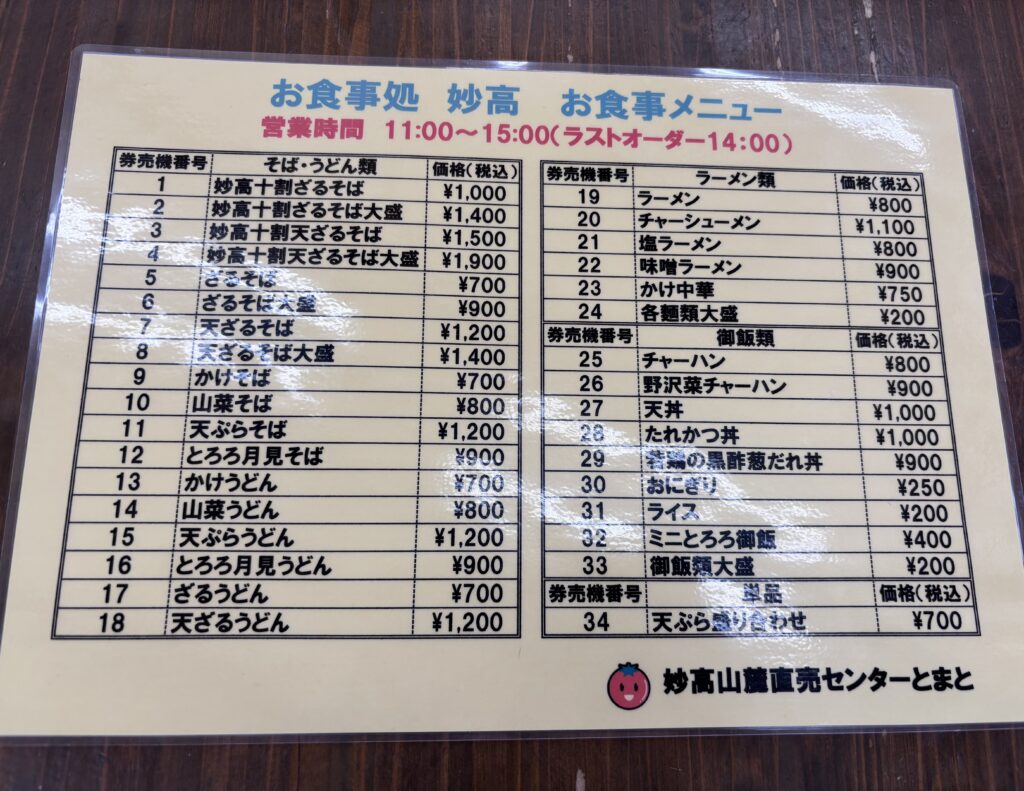 お食事処 妙高 お食事メニュー
営業時間 11:00～15:00(ラストオーダー14:00)
券売機番号 そば・うどん類 価格(税込)
1 妙高十割ざるそば ¥1,000
2 妙高十割ざるそば大盛 ¥1,400
3 妙高十割天ざるそば ¥1,500
4 妙高十割天ざるそば大盛 ¥1,900
5 ざるそば ¥700
6 ざるそば大盛 ¥900
7 天ざるそば ¥1,200
8 天ざるそば大盛 ¥1,400
9 かけそば ¥700
10 山菜そば ¥800
11 天ぷらそば ¥1,200
12 とろろ月見そば ¥900
13 かけうどん ¥700
14 山菜うどん ¥800
15 天ぷらうどん ¥1,200
16 とろろ月見うどん ¥900
17 ざるうどん ¥700
18 天ざるうどん ¥1,200
券売機番号 ラーメン類 価格(税込)
19 ラーメン ¥800
20 チャーシューメン ¥1,100
21 塩ラーメン ¥800
22 味噌ラーメン ¥900
23 かけ中華 ¥750
24 各麺類大盛 ¥200
券売機番号 御飯類 価格(税込)
25 チャーハン ¥800
26 野沢菜チャーハン ¥900
27 天丼 ¥1,000
28 たれかつ丼 ¥1,000
29 若鶏の黒酢葱だれ丼 ¥900
30 おにぎり ¥250
31 ライス ¥200
32 ミニとろろ御飯 ¥400
33 御飯類大盛 ¥200
券売機番号 単品 価格(税込)
34 天ぷら盛り合わせ ¥700
妙高山麓直売センターとまと